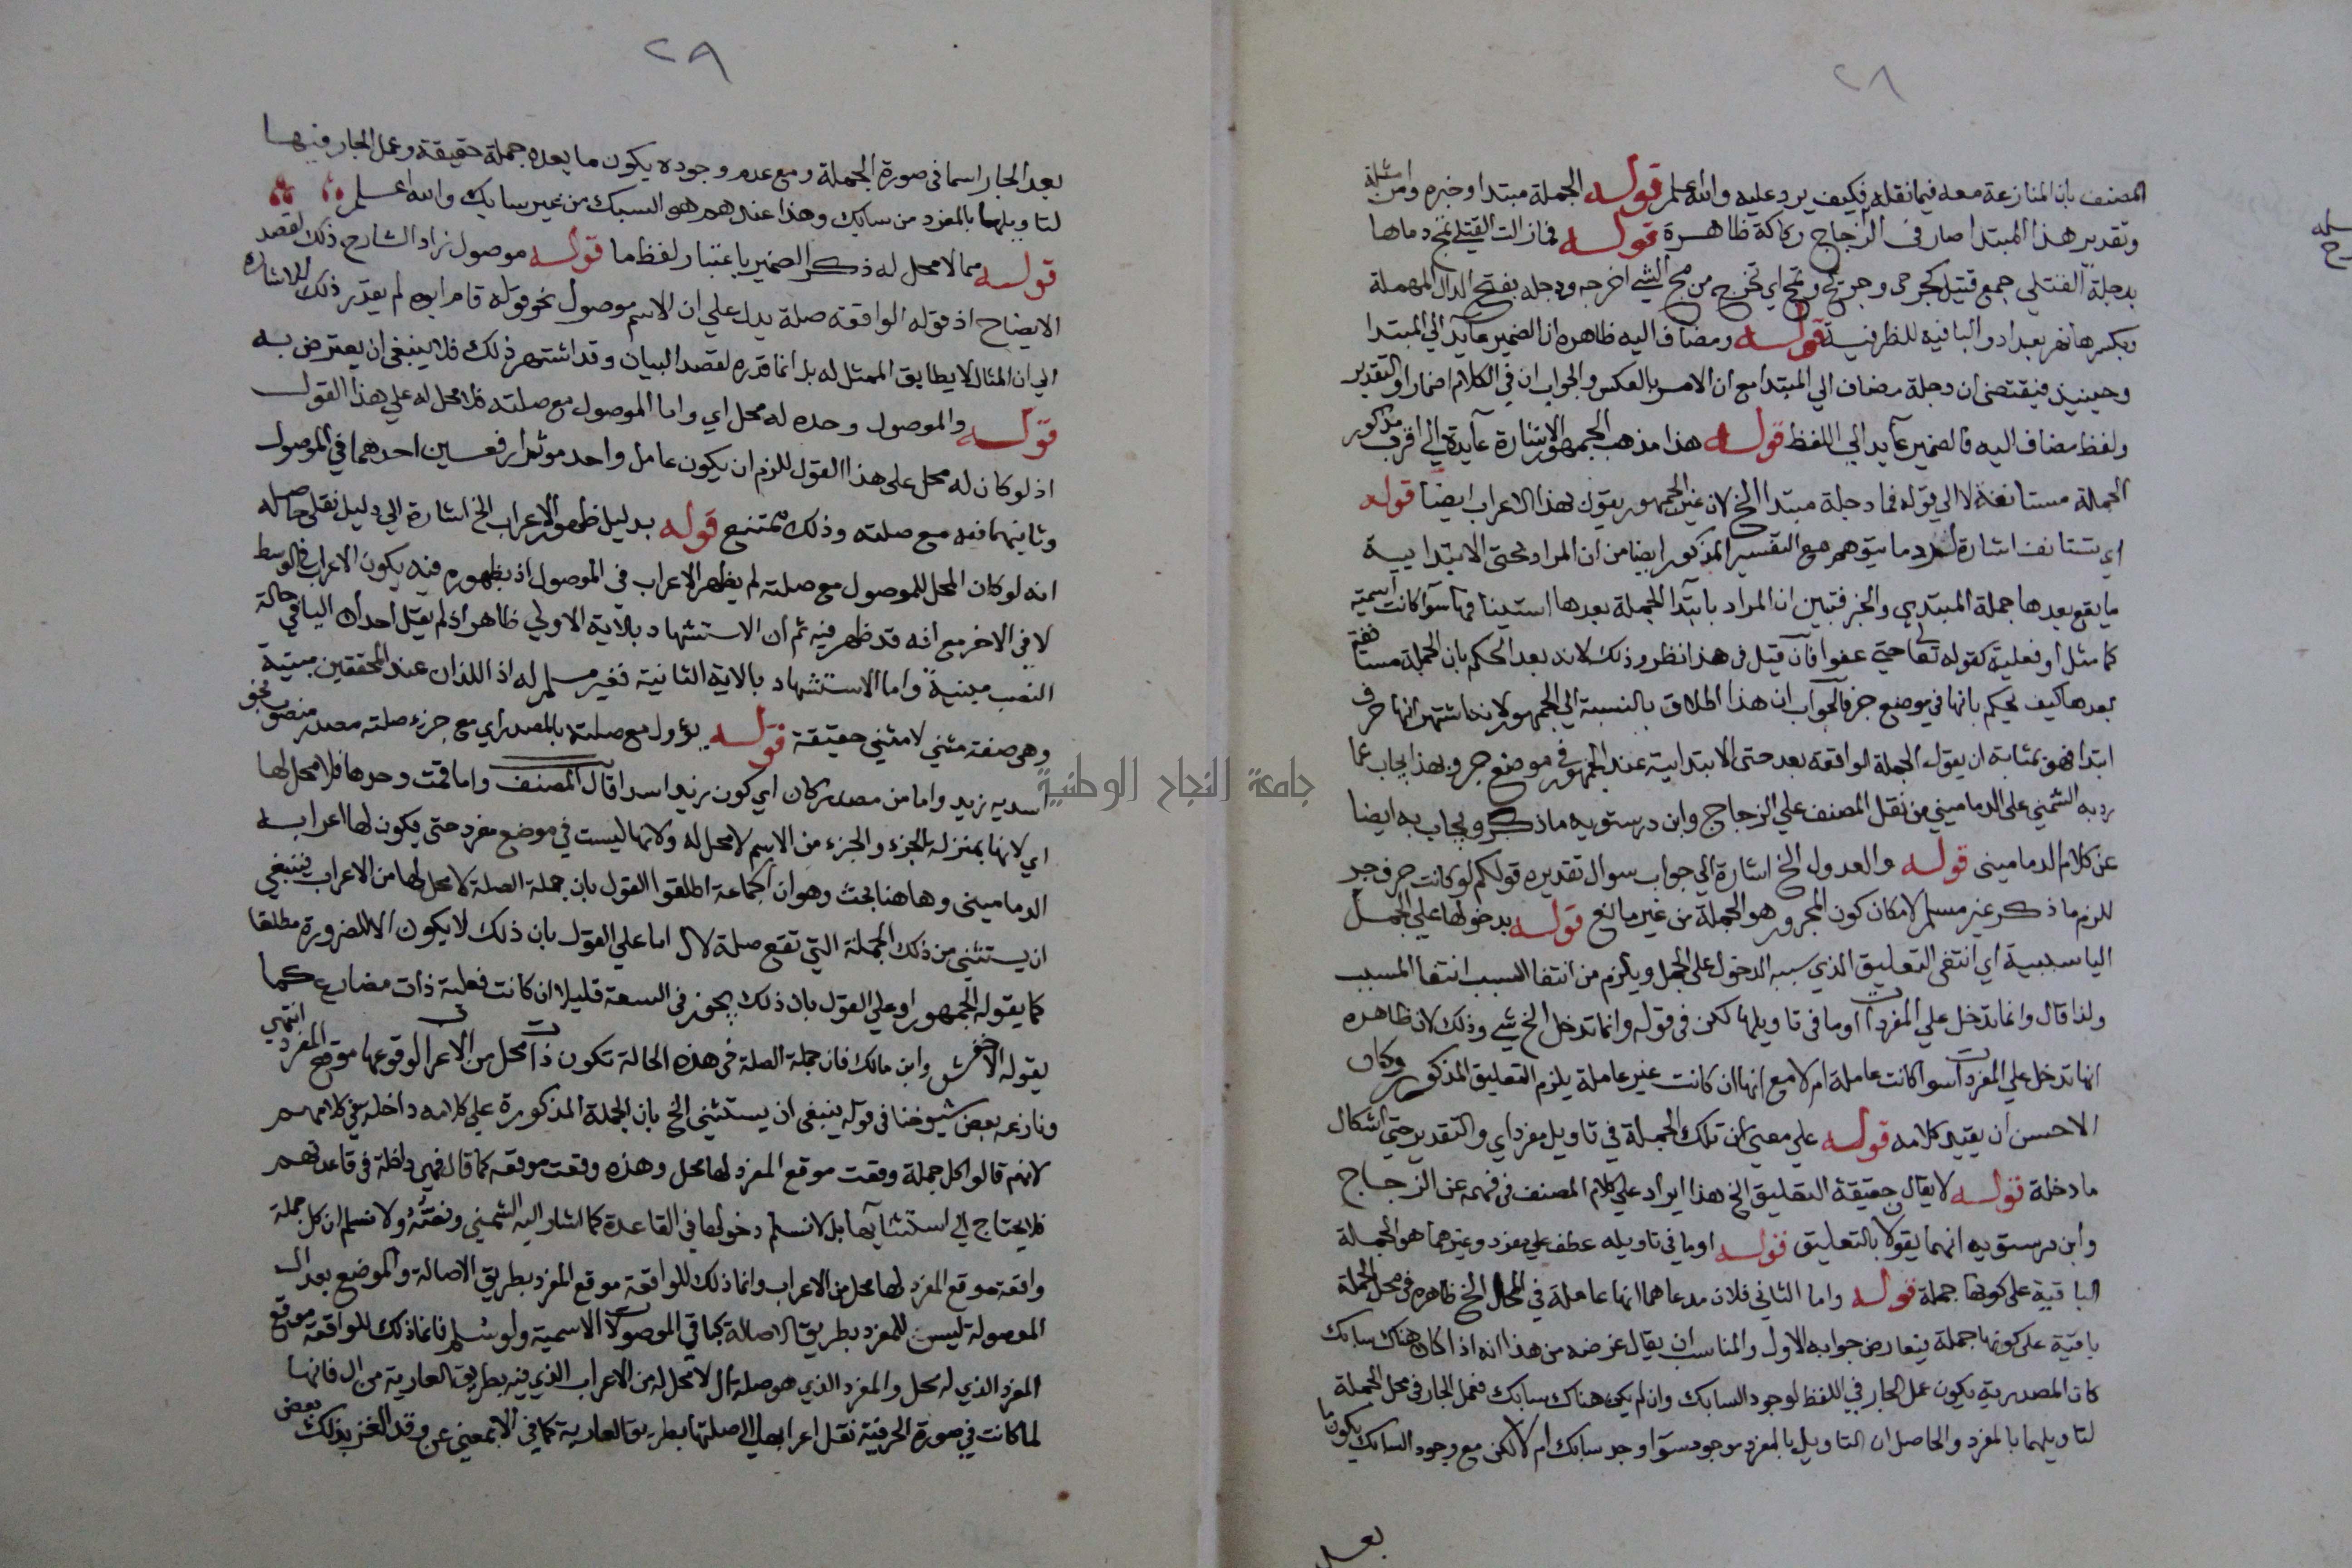 ٢٨
المصنف بان المنازعة معه فيما نقله فكيف يرد عليه والله اعلم قوله الجملة مبتدا وخبره وامثلة
وتقدير هذا المبتدا صار في الزجاج ركاكة ظاهرة قوله فما زالت القتلى تمج دماها
بدجلة القتلى جمع قتيل كجرحى وجريح وتمج اي تخرج من مج الشي اخرجه ودجله بفتح الدال المهملة
وبكسرها نهر بغداد والبا فيه للظرفية قوله ومضاف اليه ظاهره ان الضمير عايد الى المبتدا
وحينيذ فيقتضى ان دجلة مضاف الي المبتدا مع ان الامر بالعكس والجواب ان في الكلام اضمارا والتقدير
ولفظ مضاف اليه فالضمير عايد الي اللفظ قوله هذا مذهب الجمهور الاشارة عايدة الي اقرب مذكور
الجملة مستانفة لا الي قوله فما دجلة مبتدا الخ لان غير الجمهور يقول بهذا الاعراب ايضا قوله
اي تستانف اشارة لرد ما يتوهم مع التفسير المذكور ايضا من ان المراد بحتى الابتدايية
ما يقع بعدها جملة المبتدى والخبر فتبين ان المراد بابتدا الجملة بعدها استينافها سوا كانت اسمية
كما مثل او فعلية كقوله تعالى حتى عفوا فان قيل في هذا نظر وذلك لانه بعد الحكم بان الجملة مستانفة
بعدها كيف يحكم بانها في موضع جر فالجواب ان هذا اطلاق بالنسبة الي الجمهور لانها اشتهر انها حرف
ابتدا فهو بمثابة ان يقول الجملة الواقعة بعد حتى الابتدايية عند الجمهور في موضع جر وبهذا يجاب عما
رد به الشمني على الدماميني من نقل المصنف علي الزجاج وابن درستويه ما ذكر ويجاب به ايضا
عن كلام الدماميني قوله والعدول الخ اشارة الي جواب سوال تقديره قولكم لو كانت حرف جر
للزم ما ذكر غير مسلم لامكان كون المجرور هو الجملة من غير مانع قوله بدخولها علي الجمل
اليا سببية اي انتفى التعليق الذي سببه الدخول على الجمل ويلزم من انتفا السبب انتفا المسبب
ولذا قال وانما تدخل علي المفردات او ما في تاويلها لكن في قوله وانما تدخل الخ شي وذلك لان ظاهره
انها تدخل علي المفردات سوا كانت عاملة ام لا مع انها ان كانت غير عاملة يلزم التعليق المذكور وكان
الاحسن ان يقيد كلامه قوله علي معنى ان تلك الجملة في تاويل مفرد اي والتقدير حتى اشكال
ما دخلة قوله لا يقال حقيقة التعليق الخ هذا ايراد علي كلام المصنف في فهمه عن الزجاج
وابن درستويه انهما يقولان بالتعليق قوله او ما في تاويله عطف علي مفرد وغيرهما هو الجملة
الباقية على كونها جملة قوله واما الثاني فلان مدعاهما انها عاملة في المحل الخ ظاهره في محل الجملة
باقية على كونها جملة فيعارض جوابه الاول والمناسب ان يقال غرضه من هذا انه اذا كان هناك سابك
كان المصدرية يكون عمل الجار في اللفظ لوجود السابك وان لم يكن هناك سابك فعمل الجار في محل الجملة
لتاويلها بالمفرد والحاصل ان التاويل بالمفرد موجود سوا وجد سابك ام لا لكن مع وجود السابك يكون ما
بعد
٢٩
بعد الجار اسما في صورة الجملة ومع عدم وجوده يكون ما بعده جملة حقيقة وعمل الجار فيها
لتاويلها بالمفرد من سابك وهذا عندهم هو السبك من غير سابك والله اعلم
قوله مما لا محل له ذكر الضمير باعتبار لفظ ما قوله موصول زاد الشارح ذلك لقصد
الايضاح اذ قوله الواقعة صلة يدل علي ان الاسم موصول نحو قوله قام ابوه لم يقدر ذلك للاشارة
الي ان المثال لا يطابق الممثل له بل انما قدره لقصد البيان وقد اشتهر ذلك فلا ينبغي ان يعترض به
قوله والموصول وحده له محل اي واما الموصول مع صلته فلا محل له علي هذا القول
اذ لو كان له محل على هذا القول للزم ان يكون عامل واحد موثرا رفعين احدهما في الموصول
وثانيهما فيه مع صلته وذلك ممتنع قوله بدليل ظهور الاعراب الخ اشارة الي دليل نقلي حاصله
انه لو كان المحل للموصول مع صلته لم يظهر الاعراب في الموصول اذ بظهوره فيه يكون الاعراب في الوسط
لا في الاخر مع انه قد ظهر فيه ثم ان الاستشهاد بالاية الاولي ظاهر اذ لم يقل احد ان اليا في حالة
النصب مبنية واما الاستشهاد بالاية الثانية فغير مسلم له اذ اللذان عند المحققين مبنية
وهي صفة مثنى لا مثنى حقيقة قوله يؤول مع صلته بالمصدر اي مع جزء صلته مصدر منصوب نحو
اسديه زيد واما من مصدر كان اي كون زيد اسدا قال المصنف واما قمت وحدها فلا محل لها
اي لانها بمنزلة الجزء والجزء من الاسم لا محل له ولانها ليست في موضع مفرد حتى يكون لها اعرابه
الدماميني وهاهنا بحث وهو ان الجماعة اطلقوا القول بان جملة الصلة لا محل لها من الاعراب فينبغي
ان يستثنى من ذلك الجملة التي تقع صلة لال اما علي القول بان ذلك لا يكون الا للضرورة مطلقا
كما يقوله الجمهور او علي القول بان ذلك يجوز في السعة قليلا ان كانت فعلية ذات مضارع كما
يقوله الاخفش وابن مالك فان جملة الصلة في هذه الحالة تكون ذات محل من الاعراب لوقوعها موقع المفرد انتهي
ونازعه بعض شيوخنا في قوله ينبغي ان يستثنى الخ بان الجملة المذكورة علي كلامه داخلة في كلامهم
لانهم قالوا كل جملة وقعت موقع المفرد لها محل وهذه وقعت موقعه كما قال فهي داخلة في قاعدتهم
فلا يحتاج الي استثنايها بل لا نسلم دخولها في القاعدة كما اشار اليه الشمني ولا نسلم ان كل جملة
واقعة موقع المفرد لها محل من الاعراب وانما ذلك للواقعة موقع المفرد بطريق الاصالة والموضع بعد ال
الموصولة ليس للمفرد بطريق الاصالة كما في الموصولات الاسمية ولو سلم فانما ذلك للواقعة موقع
المفرد الذي له محل والمفرد الذي هو صلة ال لا محل له من الاعراب الذي فيه بطريق العارية من ال فانها
لما كانت في صورة الحرفية نقل اعرابها الي صلتها بطريق العارية كما في الا بمعنى غير وقد الغز بذلك بعض
جامعة النجاح الوطنية